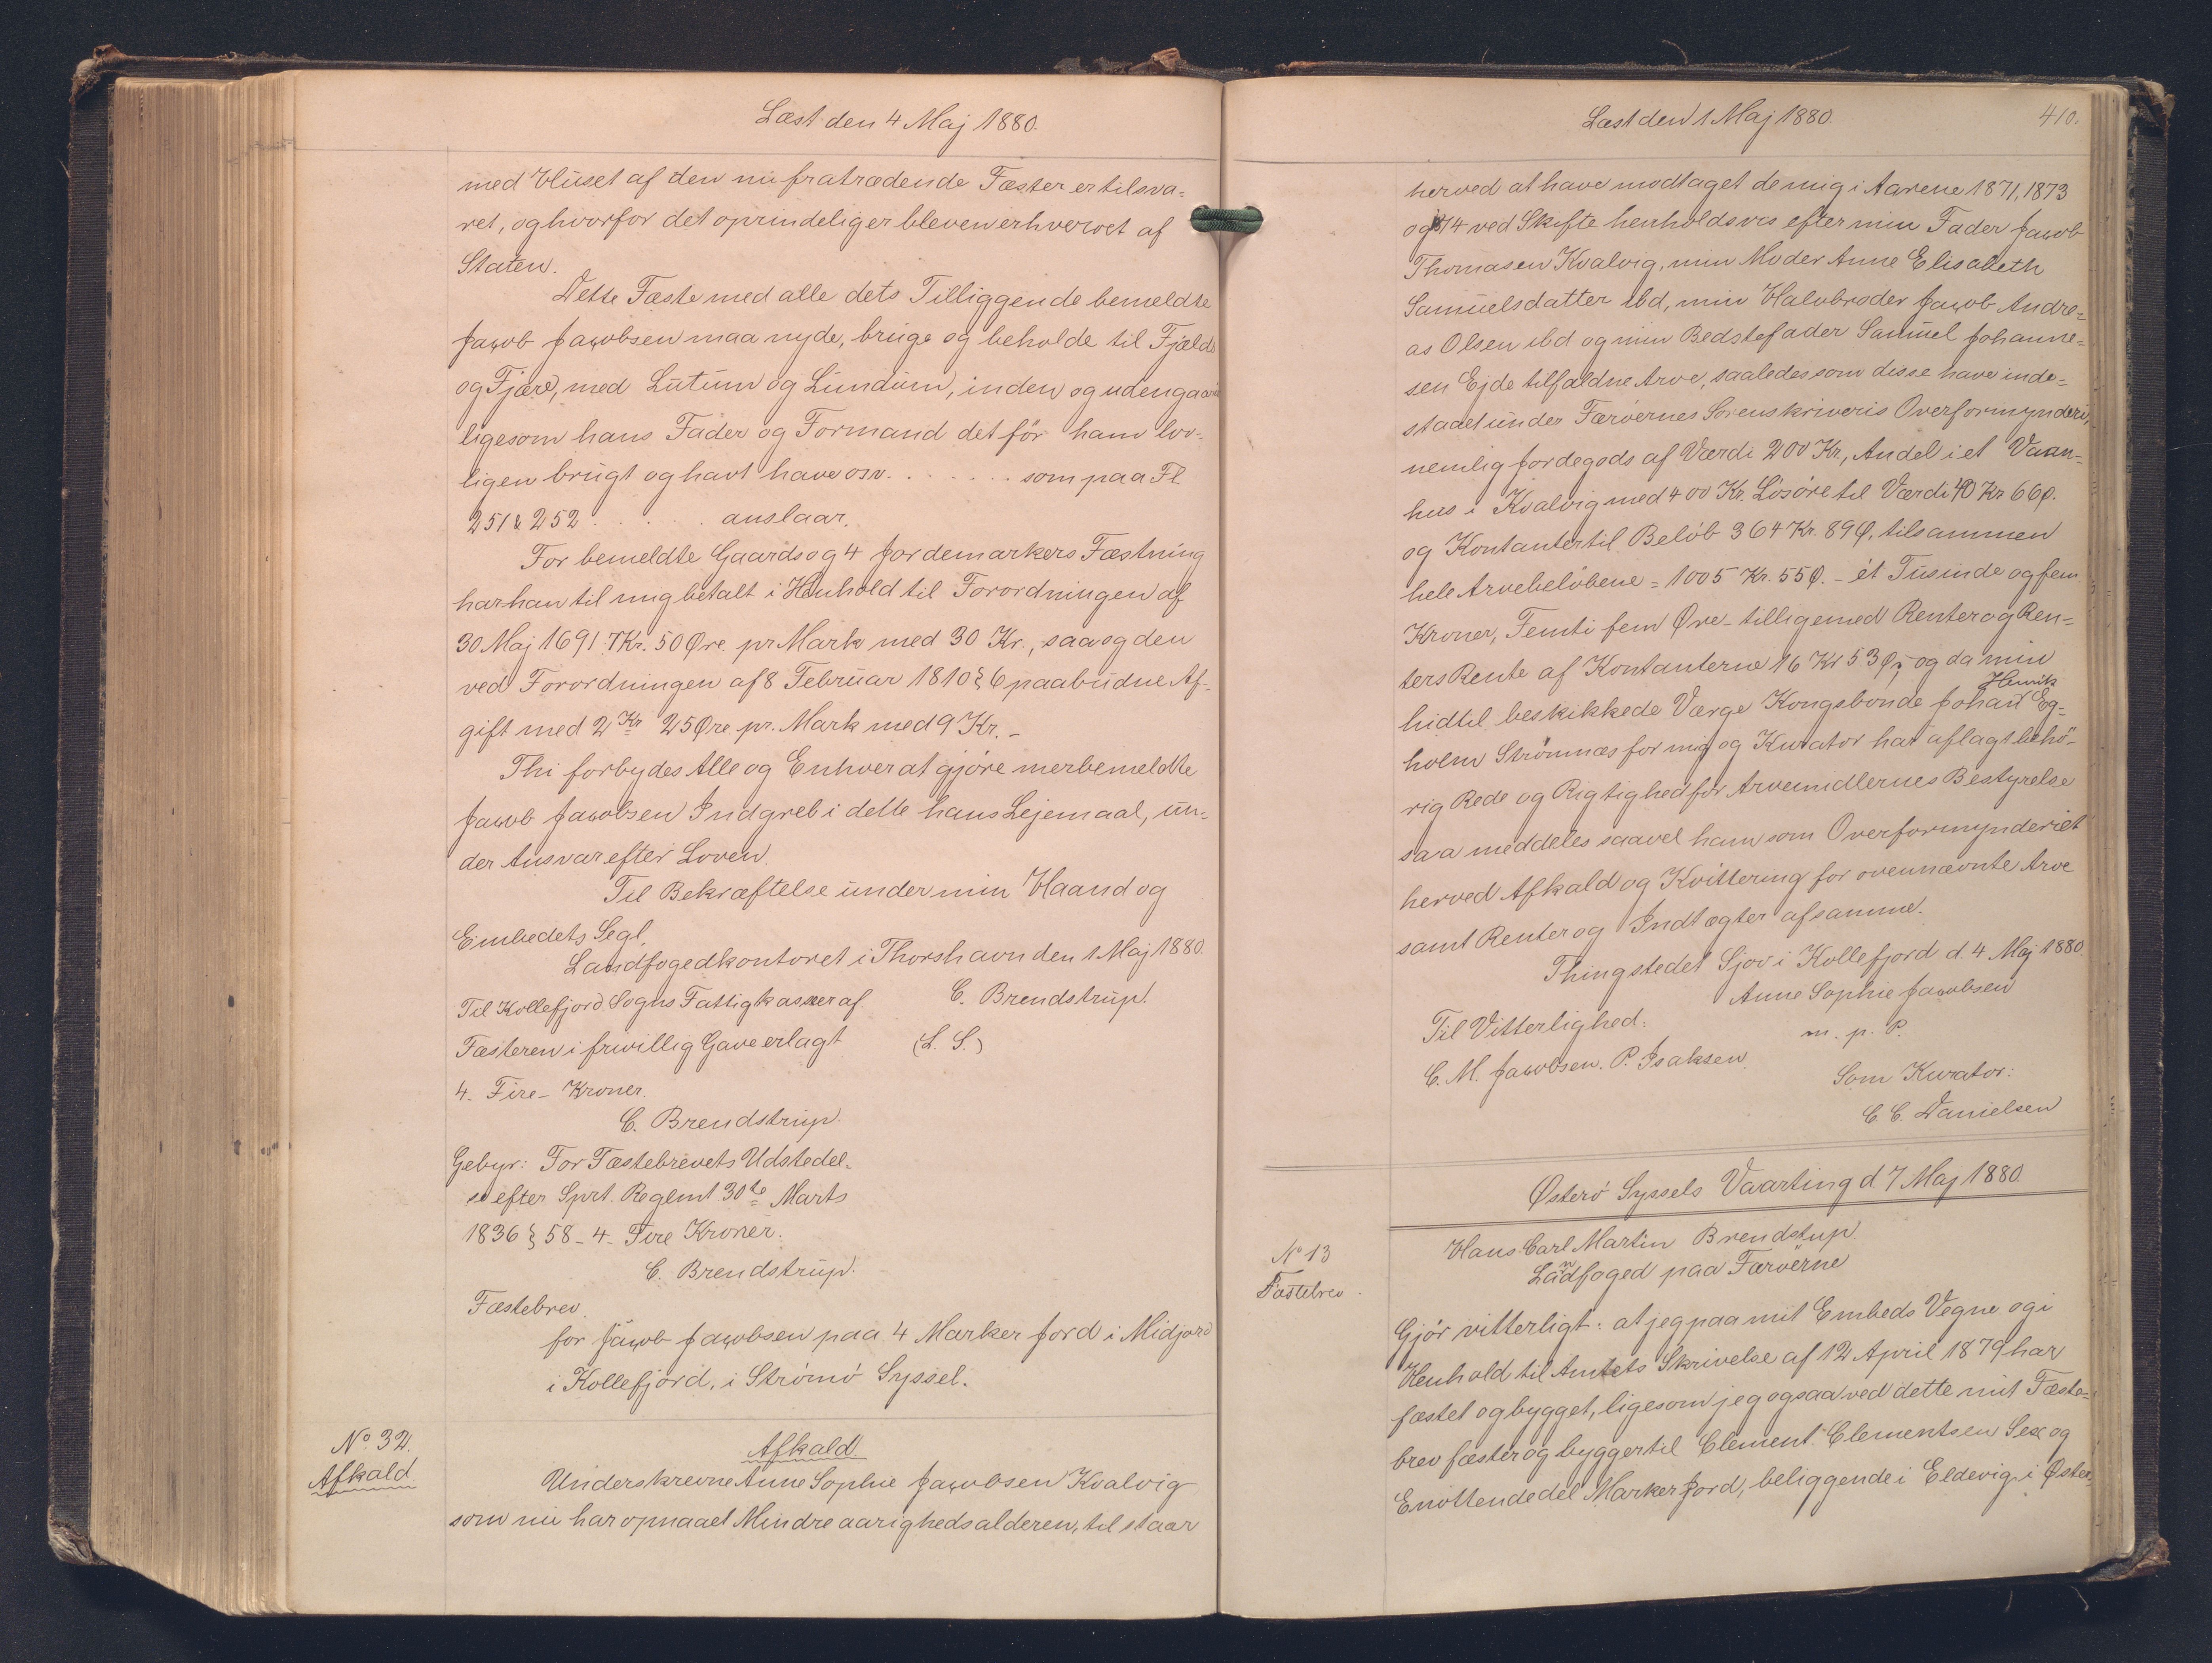 Læst den 4 Maj 1880.
med Huset af den nu fratrædende Fæster er tilsva-
ret, og hvorfor det oprindelig er bleven erhvervet af
Staten.
Dette Fæste med alle dets Tilliggende bemeldte
Jacob Jacobsen maa nyde, bruge og beholde til Fjelds
og Fjære, med Lutum og Lundum, inden og uden gaards
ligesom hans Fader og Formand det før ham lov-
ligen brugt og havt have osv. . . . . . . som paa Fl.
251 & 252 . . . . . anslaar.
For bemeldte Gaards og 4 Jordemarkers Fæstning
har han til mig betalt i Henhold til Forordningen af
30 Maj 1691 7 Kr. 50 Øre pr Mark med 30 Kr., saa og den
ved Forordningen af 8 Februar 1810 § 6 paabudne Af-
gift med 2 Kr 25 Øre pr. Mark med 9 Kr. –
Thi forbydes Alle og Enhver at gjøre merbemeldte
Jacob Jacobsen Indgreb i dette hans Lejemaal, un-
der Ansvar efter Loven.
Til Bekræftelse under min Haand og
Embedets Segl.
Landfogedkontoret i Thorshavn den 1 Maj 1880.
C. Brendstrup.
(L. S.)
Til Kollefjord Sogns Fattigkasse er af
Fæsteren i frivillig Gave erlagt
4. Fire – Kroner.
C. Brendstrup.
Gebyr: For Fæstebrevets Udstedel-
se efter Sprt. Reglemt 30te Marts
1836 § 58 – 4 – Fire Kroner.
C. Brendstrup.
Fæstebrev
for Jacob Jacobsen paa 4 Marker Jord i Midjord
i Kollefjord, i Strömö Syssel.
No. 32.
Afkald
Afkald.
Underskrevne Anne Sophie Jacobsen Kvalvig
som nu har opnaaet Mindreaarighedsalderen, tilstaar
Læst den 1 Maj 1880.
410.
herved at have modtaget de mig i Aarene 1871, 1873
og 74 ved Skifte henholdsvis efter min Fader Jacob
Thomasen Kvalvig, min Moder Anne Elisabeth
Samuelsdatter ibd, min Halvbroder Jacob Andre-
as Olsen ibd og min Bedstefader Samuel Johanne-
sen Ejde tilfaldne Arve, saaledes som disse have inde-
staaet under Færöernes Sorenskriveris Overformynderi,
nemlig Jordegods af Værdi 200 Kr, Andel i et Vaan-
hus i Kvalvig med 400 Kr. Lösöre til Værdi 40 Kr 66 Ø.
og Kontanter til Belöb 364 Kr. 89 Ø, tilsammen
hele Arvebelöbene = 1005 Kr. 55 Ø. – ét Tusinde og fem
Kroner, Femti fem Øre – tilligemed Renter og Ren-
ters Rente af Kontanterne 16 Kr 53 Ø; og da min
hidtil beskikkede Værge Kongsbonde Johan Henrik Eg-
holm Strömnæs for mig og Kurator har aflagt behö-
rig Rede og Rigtighed for Arvemidlernes Bestyrelse
saa meddeles saavel ham som Overformynderiet
herved Afkald og Kvittering for ovennævnte Arve
samt Renter og Indtægter af samme.
Thingstedet Sjov i Kollefjord d. 4 Maj 1880.
Anne Sophie Jacobsen
m. p. P.
Til Vitterlighed:
C. M. Jacobsen. P. Isaksen.
Som Kurator:
C. C. Danielsen
Østerö Syssels Vaarting d 7 Maj 1880.
No 13
Fæstebrev.
Hans Carl Martin Brendstup
Landfoged paa Færöerne
Gjör vitterligt: at jeg paa mit Embeds Vegne og i
Henhold til Amtets Skrivelse af 12 April 1879 har
fæstet og bygget, ligesom jeg ogsaa ved dette mit Fæste-
brev fæster og bygger til Clement Clementsen Sex og
En ottendedel Marker Jord, beliggende i Eldevig i Øster-